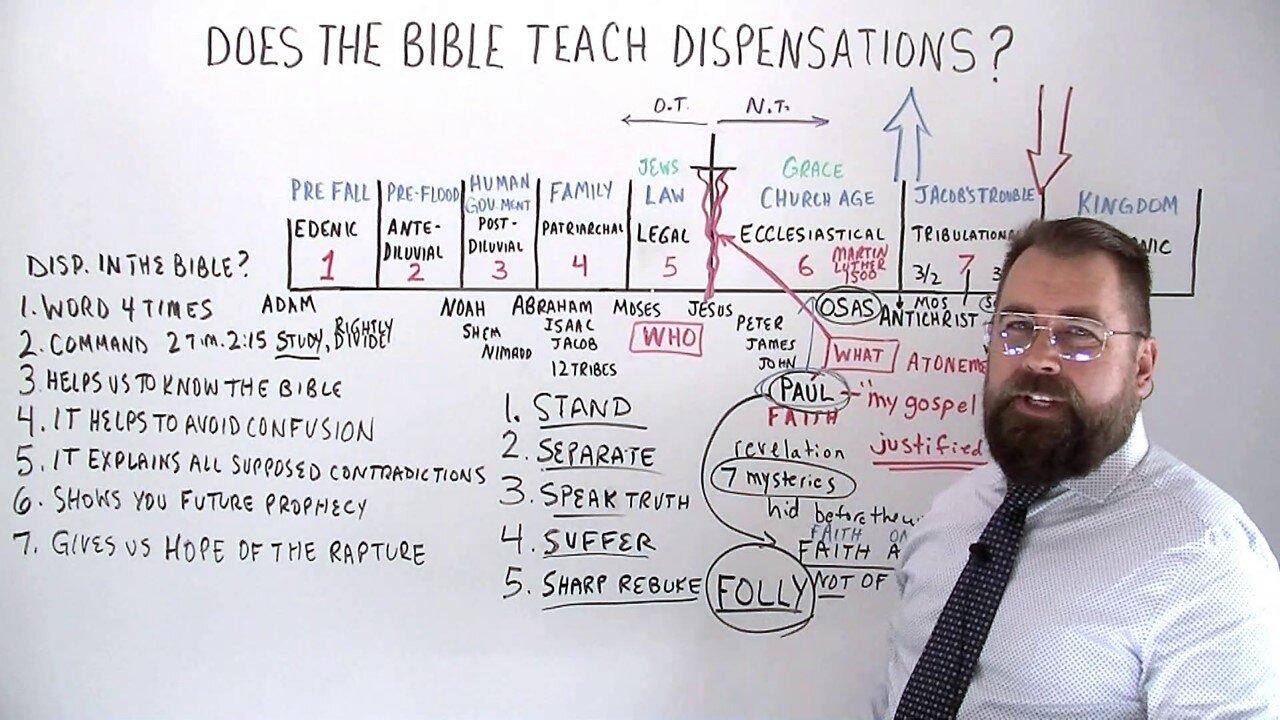 DOES THE BIBLE TEACH DISPENSATIONS?
O.T. N.T.
JEWS GRACE
PRE FALL PRE-FLOOD HUMAN GOV.MENT FAMILY LAW CHURCH AGE JACOB'S TROUBLE KINGDOM
EDENIC ANTE-DILUVIAL POST-DILUVIAL PATRIARCHAL LEGAL ECCLESIASTICAL TRIBULATION
1 2 3 4 5 6 MARTIN LUTHER 1500 3/2 7
DISP. IN THE BIBLE?
1. WORD 4 TIMES
2. COMMAND 2 TIM. 2:15 STUDY, RIGHTLY DIVIDE
3. HELPS US TO KNOW THE BIBLE
4. IT HELPS TO AVOID CONFUSION
5. IT EXPLAINS ALL SUPPOSED CONTRADICTIONS
6. SHOWS YOU FUTURE PROPHECY
7. GIVES US HOPE OF THE RAPTURE
ADAM
NOAH
SHEM
NIMROD
ABRAHAM
ISAAC
JACOB
12 TRIBES
MOSES
WHO
JESUS
PETER
JAMES
JOHN
OSAS
MOS
ANTICHRIST
WHAT
PAUL "my gospel
FAITH
justified
revelation
7 mysteries
hid before the
FAITH
FAITH
NOT OF
1. STAND
2. SEPARATE
3. SPEAK TRUTH
4. SUFFER
5. SHARP REBUKE
FOLLY